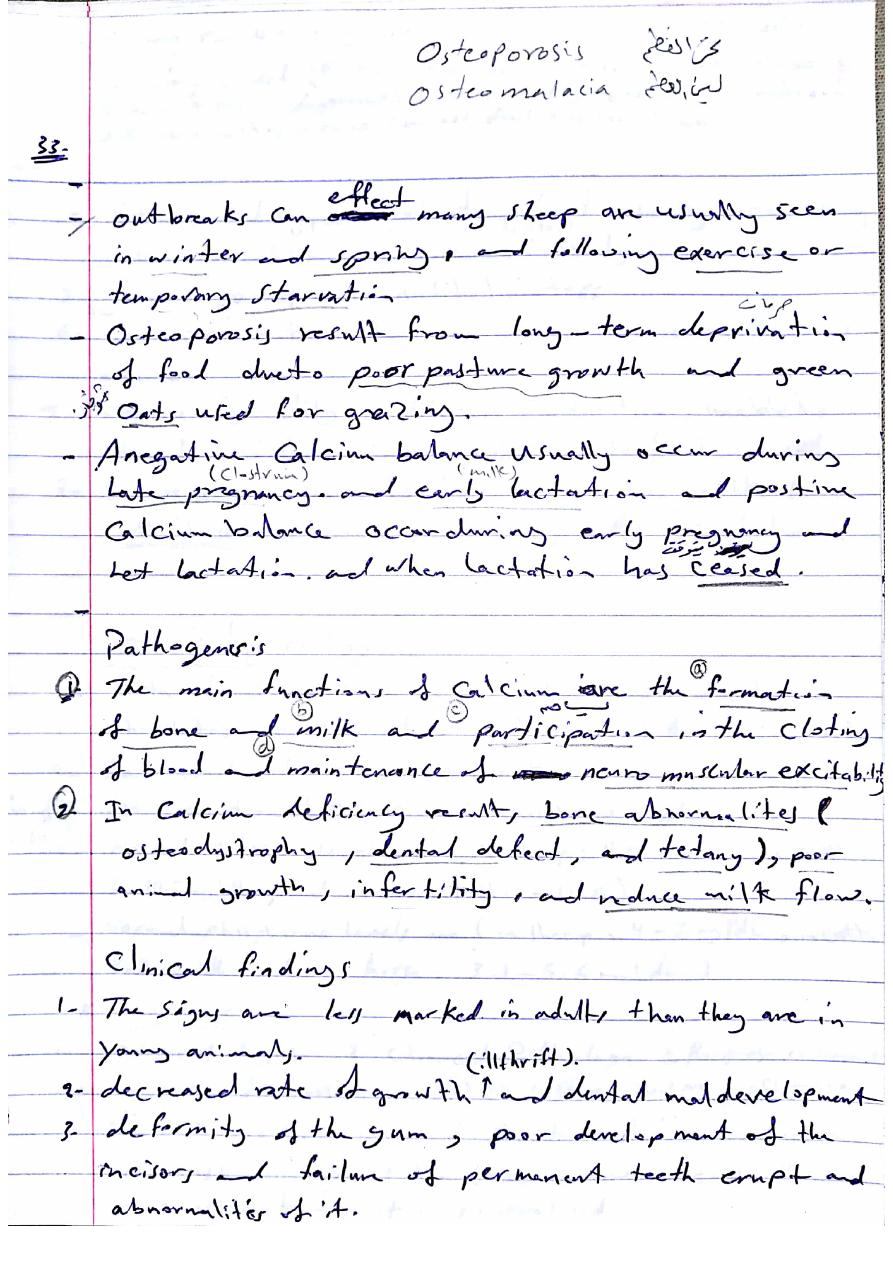 Osteoporosis نخر العظم
Osteomalacia لين العظم
33-
-
- outbreaks can effect many sheep are usually seen
in winter and spring, and following exercise or
temporary starvation
حرمان
- Osteoporosis result from long-term deprivation
of food dueto poor pasture growth and green
Oats used for grazing.
- Anegative Calcium balance usually occur during
(milk)
Late pregnancy. and early lactation and postive
Calcium balance occur during early pregnancy and
lactation. and when lactation has ceased.
-
Pathogenesis
① The main functions of Calcium are the ⓐ formation
of bone and ⓑ milk and ⓒ participation in the Cloting
of blood and ⓓ maintenance of neuro muscular excitability
② In Calcium deficiency result, bone abnormalites (
osteodystrophy, dental defect, and tetany), poor
animal growth, infertility, and reduce milk flow.
Clinical findings
1- The signs are less marked in adults than they are in
young animals.
(illthrift).
2- decreased rate of growth ↑ and dental maldevelopment
3- deformity of the gum, poor development of the
incisors and failure of permanent teeth erupt and
abnormalites of it.